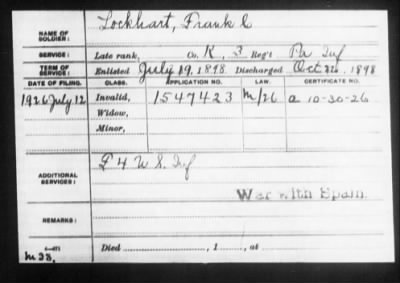 NAME OF SOLDIER: Lockhart, Frank C
SERVICE: Late rank, Co. K, 3 Reg't Pa Inf
TERM OF SERVICE: Enlisted July 19, 1898 Discharged Oct 22, 1898
DATE OF FILING. CLASS. APPLICATION NO. LAW. CERTIFICATE NO.
1926 July 12 Invalid, 1547423 M/26 a 10-30-26
Widow,
Minor,
ADDITIONAL SERVICES: L 4 U S. Inf
War with Spain.
REMARKS:
Died , 1 , at